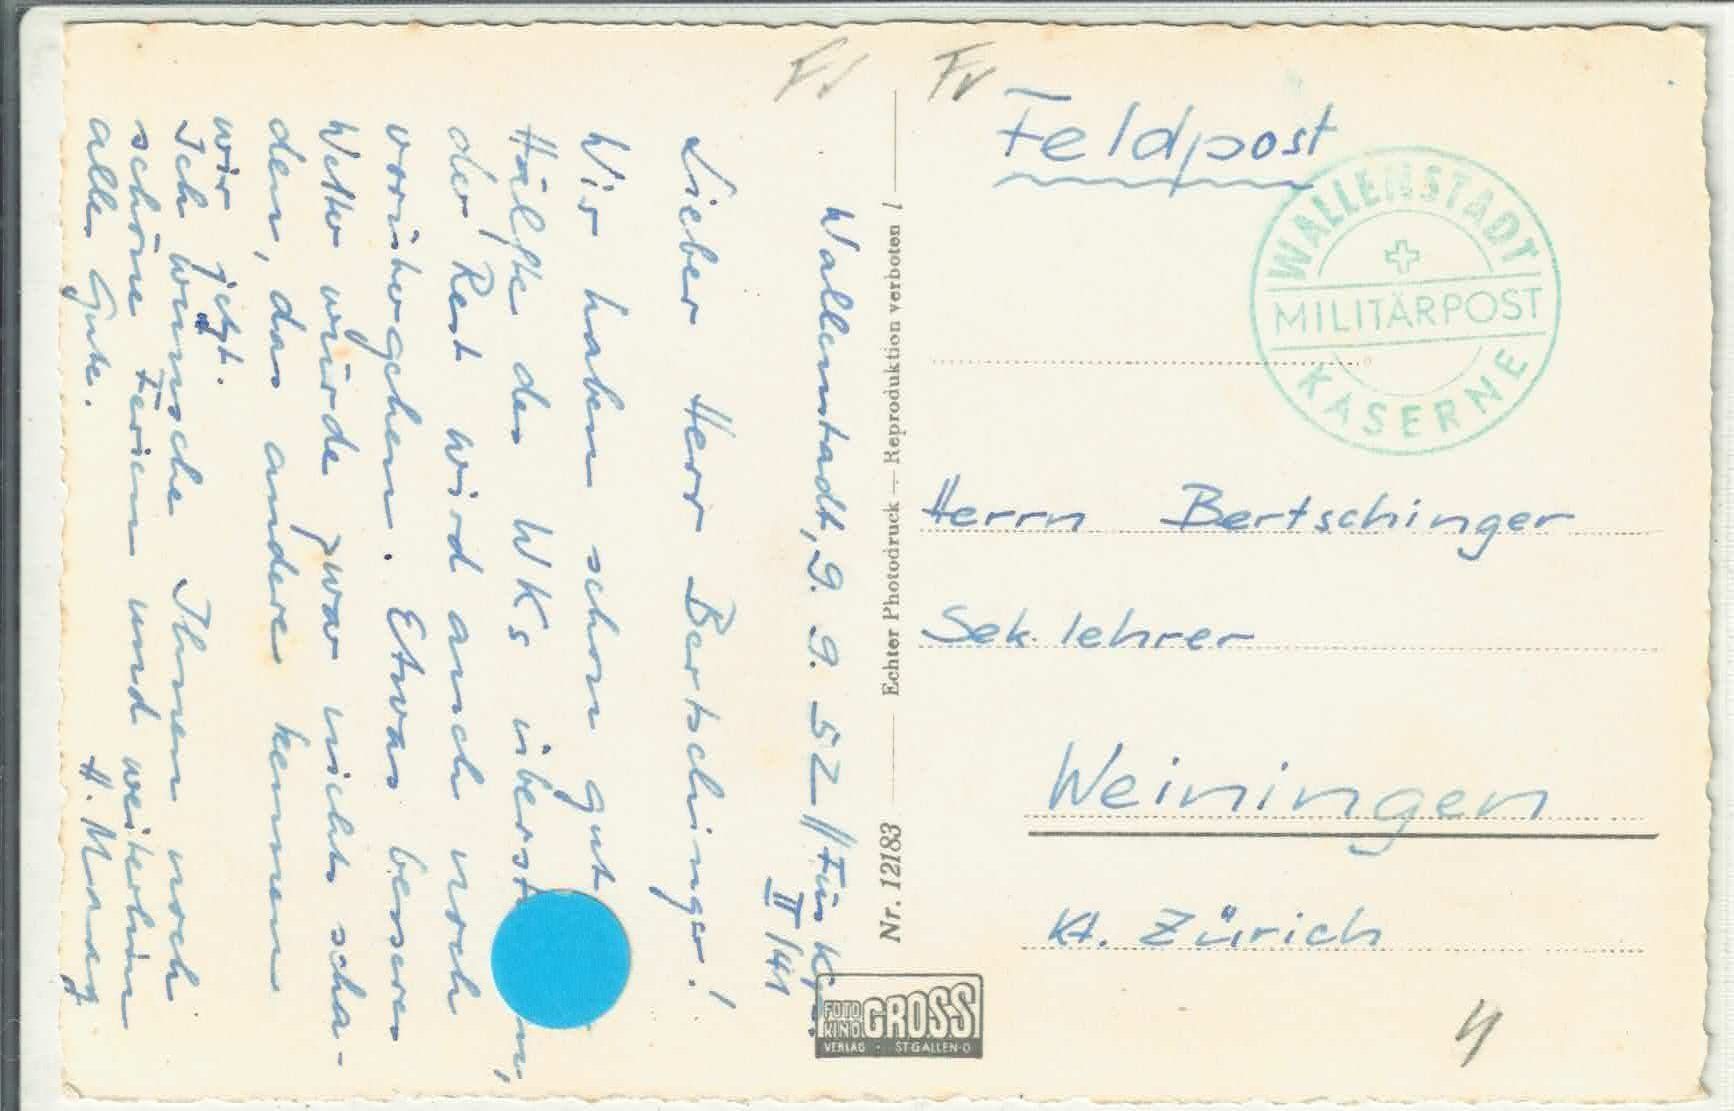 Fv
Fv
Feldpost
WALLENSTADT
MILITÄRPOST
KASERNE
Herrn Bertschinger
Sek. lehrer
Weiningen
Kt. Zürich
Echter Photodruck — Reproduktion verboten !
Nr. 12183
FOTO KINO GROSS
VERLAG · ST.GALLEN-O
Wallenstadt, 9. 9. 52 // Füs Kp.
II/141
Lieber Herr Bertschinger!
Wir haben schon gut
Hälfte des WKs
der Rest wird auch noch
vorübergehen. Etwas besseres
Wetter würde zwar nichts scha-
den, das andere kennen
wir jetzt.
Ich wünsche Ihnen noch
schöne Ferien und weiterhin
alles Gute.